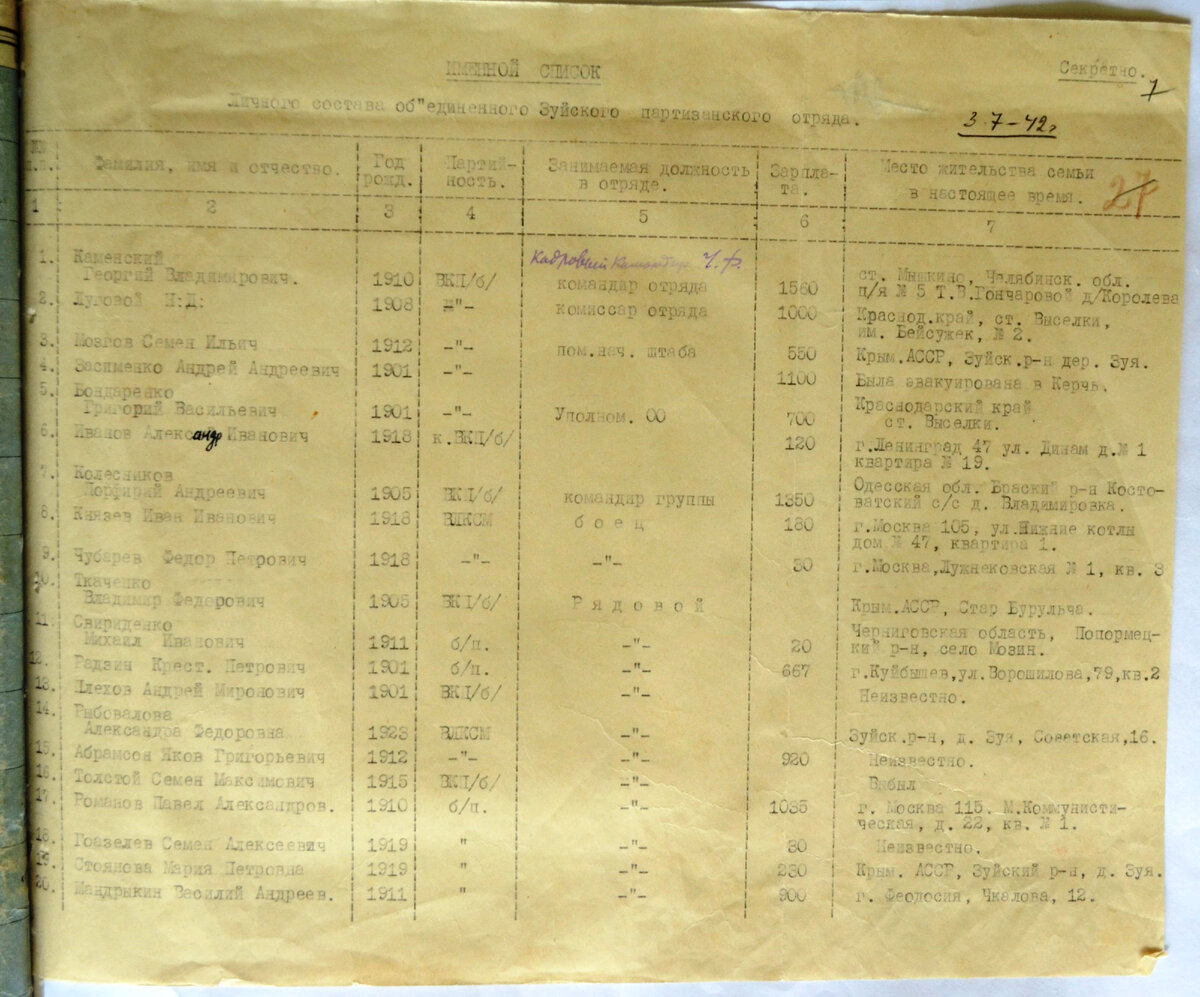 ИМЕННОЙ СПИСОК
Секретно.
7
Личного состава об"единенного Зуйского партизанского отряда.
3.7-42г
№№ п.п. Фамилия, имя и отчество. Год рожд. Партий-ность. Занимаемая должность в отряде. Зарпла-та. Место жительства семьи в настоящее время. 27
1 2 3 4 5 6 7
Кадровый Командир Ч.Ф.
1. Каменский
Георгий Владимирович. 1910 ВКП/б/ командир отряда 1560 ст. Мышкино, Челябинск. обл.
п/я № 5 Т.В.Гончаровой д/Королева
2. Луговой Н:Д: 1908 -"- комиссар отряда 1000 Краснод.край, ст. Выселки,
им. Бейсужек, № 2.
3. Мозгов Семен Ильич 1912 -"- пом.нач. штаба 550 Крым.АССР, Зуйск.р-н дер. Зуя.
4. Засименко Андрей Андреевич 1901 -"- 1100 Была эвакуирована в Керчь.
5. Бондаренко
Григорий Васильевич 1901 -"- Уполном. ОО 700 Краснодарский край
ст. Выселки.
6. Иванов Александр Иванович 1918 к.ВКП/б/ 120 г.Ленинград 47 ул. Динам д.№ 1
квартира № 19.
7. Колесников
Порфирий Андреевич 1905 ВКП/б/ командир группы 1350 Одесская обл. Враский р-н Косто-
ватский с/с д. Владимировка.
8. Князев Иван Иванович 1918 ВЛКСМ боец 180 г.Москва 105, ул.Нижние котлы
дом № 47, квартира 1.
9. Чубарев Федор Петрович 1918 -"- -"- 30 г.Москва,Лужнековская № 1, кв. 3
10. Ткаченко
Владимир Федорович 1905 ВКП/б/ Рядовой Крым.АССР, Стар Бурульча.
11. Свириденко
Михаил Иванович 1911 б/п. -"- 20 Черниговская область, Попормец-
кий р-н, село Мозин.
12. Радзин Крест. Петрович 1901 б/п. -"- 667 г.Куйбышев,ул.Ворошилова,79,кв.2
13. Плехов Андрей Миронович 1901 ВКП/б/ -"- Неизвестно.
14. Рыбовалова
Александра Федоровна 1923 ВЛКСМ -"- Зуйск.р-н, д. Зуя, Советская,16.
15. Абрамсон Яков Григорьевич 1912 -"- -"- 920 Неизвестно.
16. Толстой Семен Максимович 1915 ВКП/б/ -"- Выбыл
17. Романов Павел Александров. 1910 б/п. -"- 1035 г. Москва 115. М.Коммунисти-
ческая, д. 22, кв. № 1.
18. Гоазелев Семен Алексеевич 1919 " -"- 30 Неизвестно.
19. Стоянова Мария Петровна 1919 " -"- 230 Крым. АССР, Зуйский р-н, д. Зуя.
20. Мандрыкин Василий Андреев. 1911 " -"- 900 г. Феодосия, Чкалова, 12.